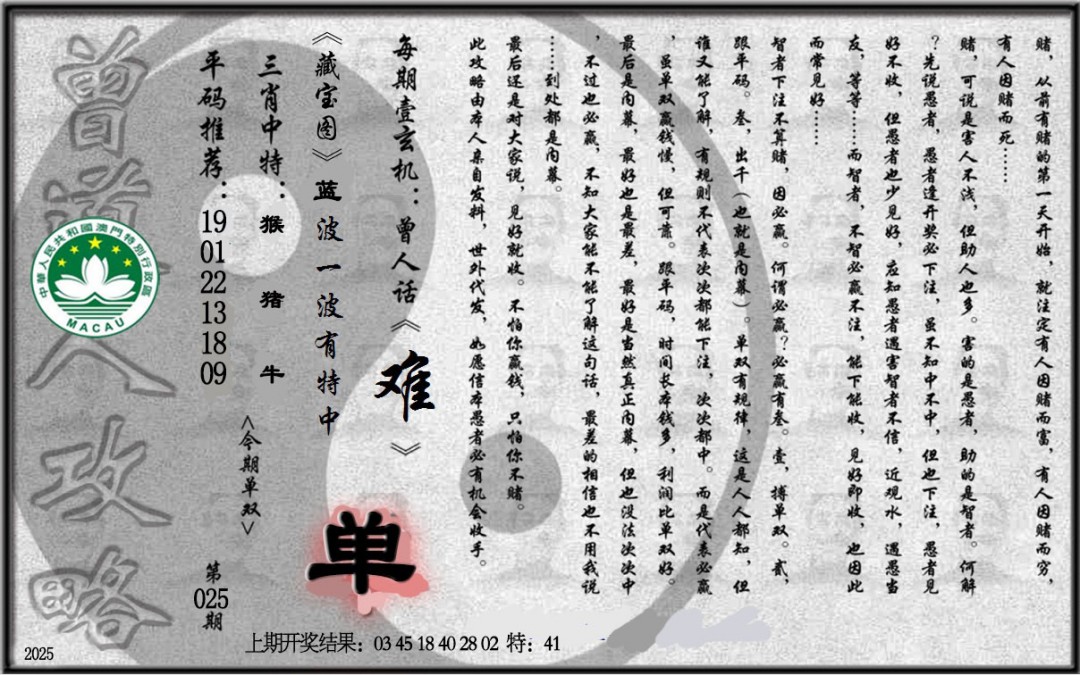 赌，从前有赌的第一天开始，就注定有人因赌而富，有人因赌而穷，
有人因赌而死……
赌，可说是害人不浅，但助人也多。害的是愚者，助的是智者。何解
？先说愚者，愚者逢开奖必下注，虽不知中不中，但也下注，愚者见
好不收，但愚者也少见好，应知愚者遇害智者不信，近观水，遇愚当
友，等等……而智者，不智必赢不注，能下能收，见好即收，也因此
而常见好……
智者下注不算赌，因必赢。何谓必赢？必赢有叁。壹，搏单双。贰，
跟平码。叁，出千（也就是内幕）。单双有规律，这是人人都知，但
谁又能了解，有规则不代表次次都能下注，次次都中。而是代表必赢
，虽单双赢钱慢，但可靠。跟平码，时间长本钱多，利润比单双好。
最后是内幕，最好也是最差，最好是当然真正内幕，但也没法次次中
，不过也必赢，不知大家能不能了解这句话，最差的相信也不用我说
……到处都是内幕。
最后还是对大家说，见好就收。不怕你赢钱，只怕你不赌。
此攻略由本人亲自发料，世外代发，如愿信本愚者必有机会收手。
每期壹玄机：曾人话《难》
《藏宝图》蓝波一波有特中
三肖中特：猴 猪 牛
平码推荐：19 01 22 13 18 09
<今期单双>
单
第025期
曾道人攻略
中華人民共和國澳門特別行政區
MACAU
上期开奖结果：03 45 18 40 28 02 特：41
2025